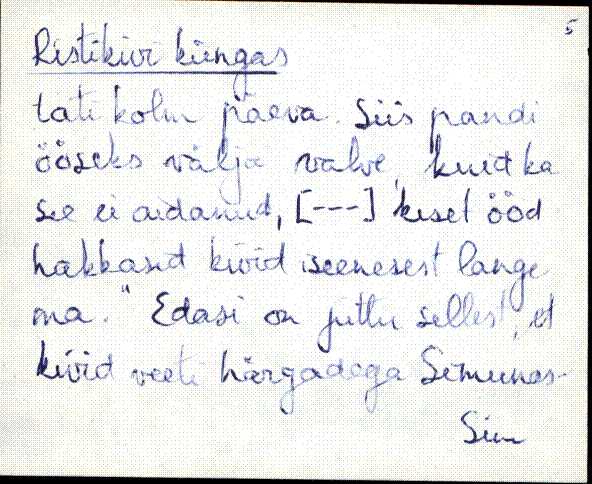 5
Ristikivi küngas
tati kolm päeva. Siis pandi
ööseks välja valve, kuid ka
see ei aidanud, [---] keset ööd
hakkasid kivid iseenesest lange
ma." Edasi on juttu sellest, et
kivid veeti härgadega Simunas-
Sim